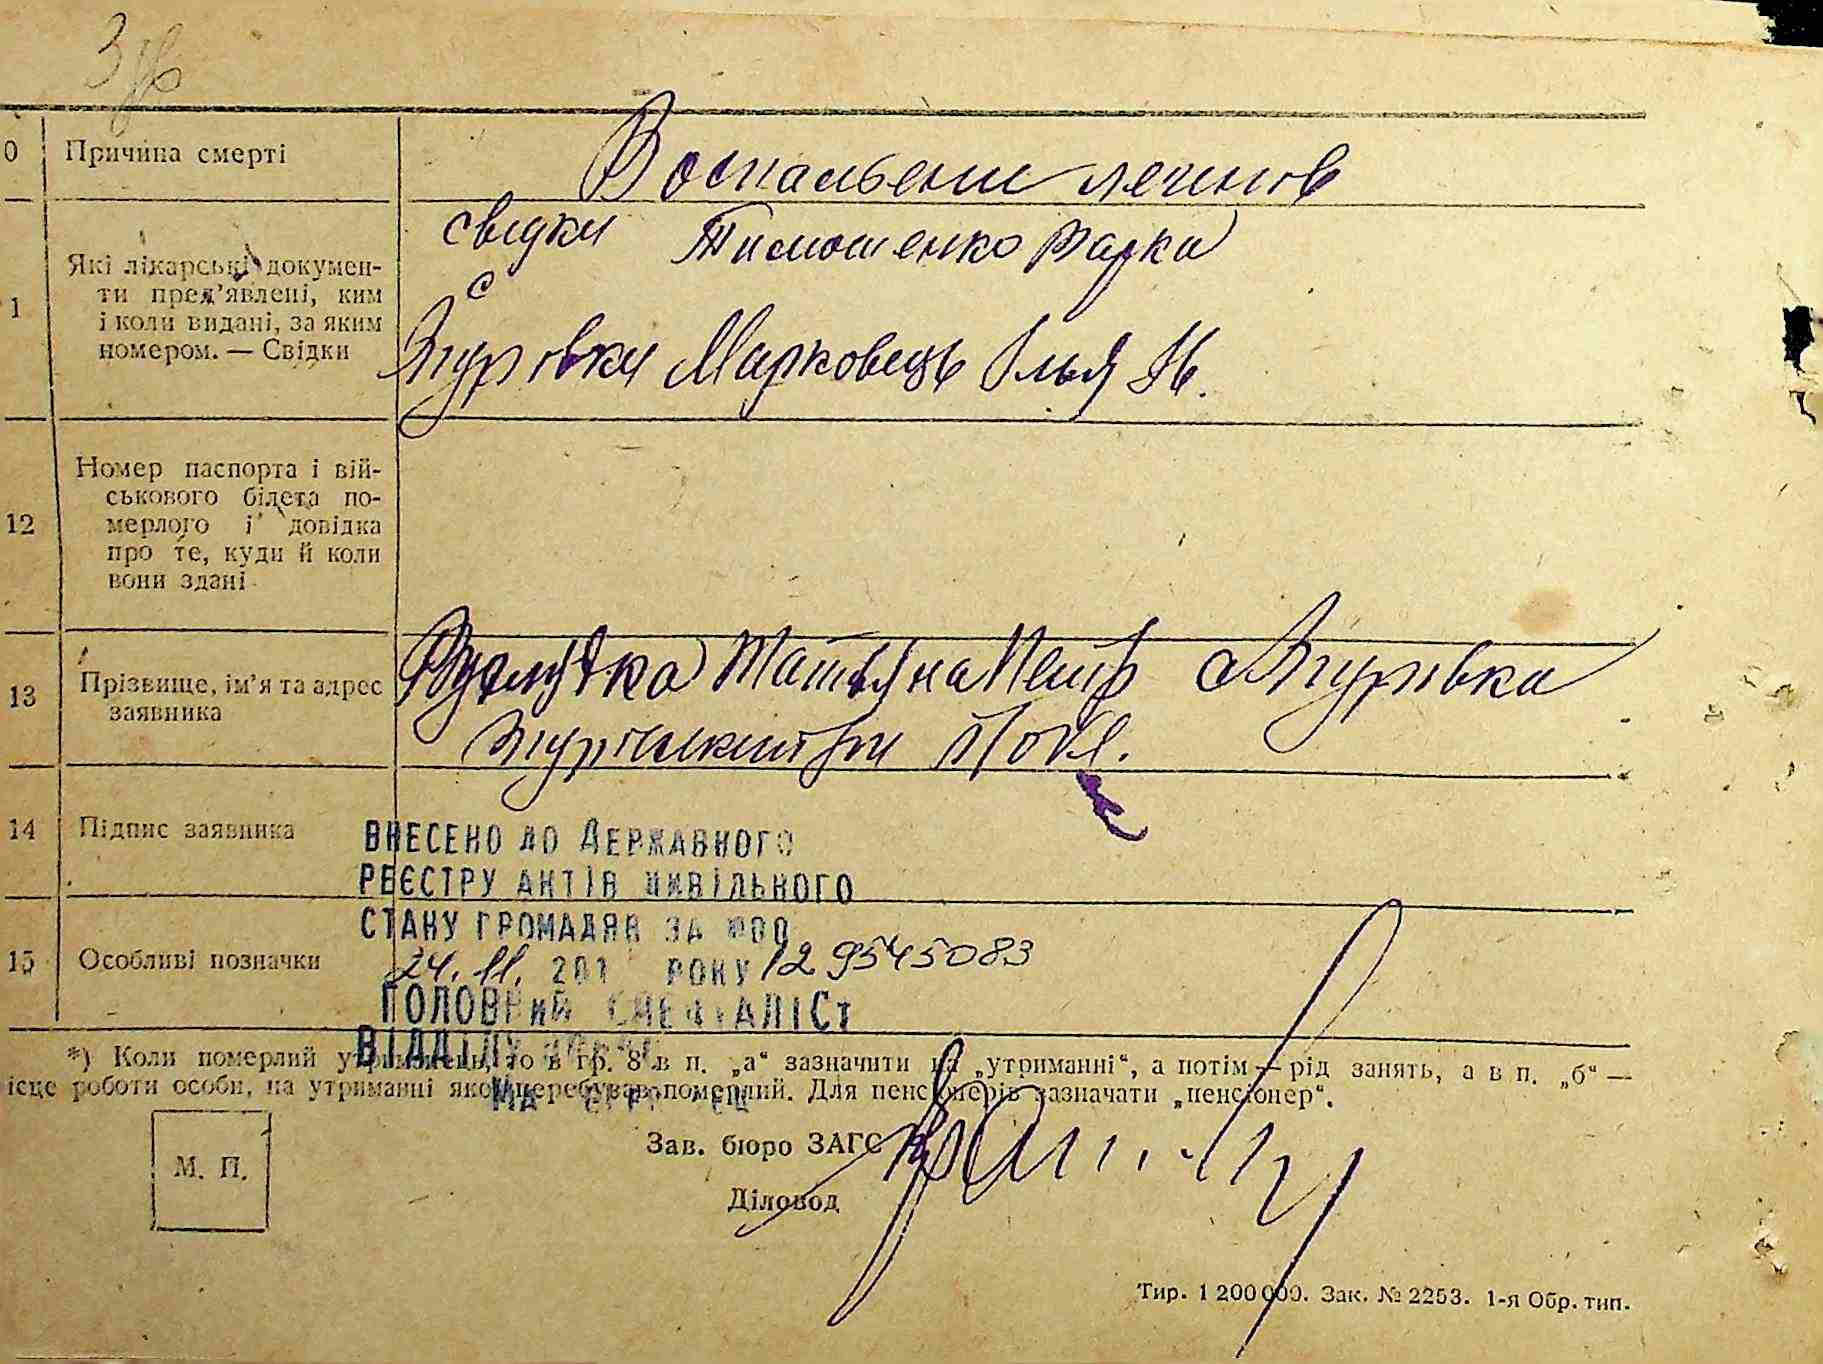 0 Причина смерті Воспальени легнов
свідки Тимошенко Варка
1 Які лікарські докумен-
ти пред'явлені, ким
і коли видані, за яким
номером. — Свідки
с
Згурівки Марковець Ілья Ив.
12 Номер паспорта і вій-
ськового білета по-
мерлого і довідка
про те, куди й коли
вони здані
13 Прізвище, ім'я та адрес
заявника
Татьяна Петр с Згурівка
14 Підпис заявника
ВНЕСЕНО ДО ДЕРЖАВНОГО
РЕЄСТРУ АКТІВ ЦИВІЛЬНОГО
СТАНУ ГРОМАДЯН ЗА №00
15 Особливі позначки
24.11. 201 РОКУ 12 9545083
ГОЛОВНИЙ СПЕЦІАЛІСТ
ВІДДІЛУ
*) Коли померлий утриманець, то в гр. 8 в п. „а“ зазначити на „утриманні“, а потім — рід занять, а в п. „б“ —
ісце роботи особи, на утриманні якої перебував померлий. Для пенсіонерів зазначати „пенсіонер“.
М. П.
Зав. бюро ЗАГС
Діловод
Тир. 1 200 000. Зак. № 2253. 1-я Обр. тип.